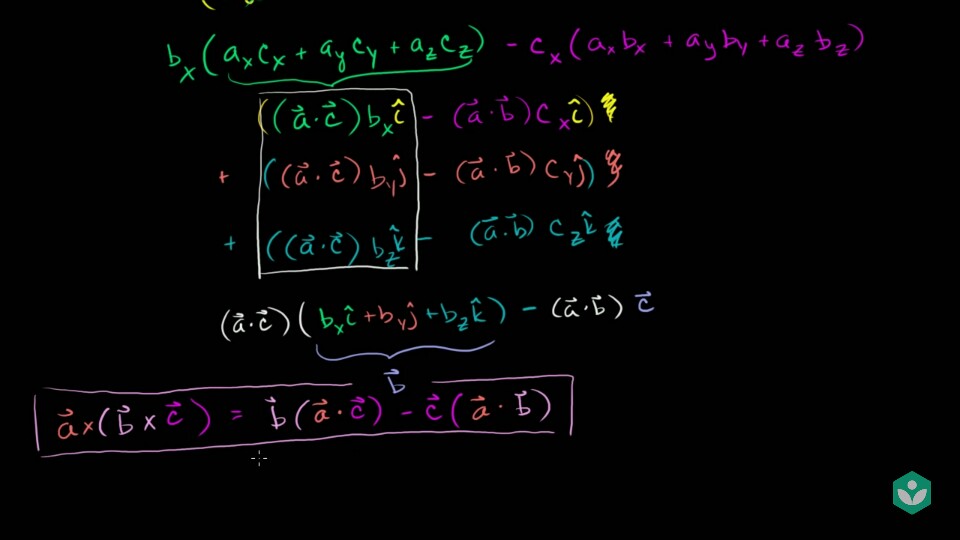 b_x(a_x c_x + a_y c_y + a_z c_z) - c_x(a_x b_x + a_y b_y + a_z b_z)
((a⃗·c⃗)b_x î - (a⃗·b⃗)c_x î)
+ ((a⃗·c⃗)b_y ĵ - (a⃗·b⃗)c_y ĵ)
+ ((a⃗·c⃗)b_z k̂ - (a⃗·b⃗)c_z k̂
(a⃗·c⃗)(b_x î + b_y ĵ + b_z k̂) - (a⃗·b⃗)c⃗
b⃗
a⃗×(b⃗×c⃗) = b⃗(a⃗·c⃗) - c⃗(a⃗·b⃗)